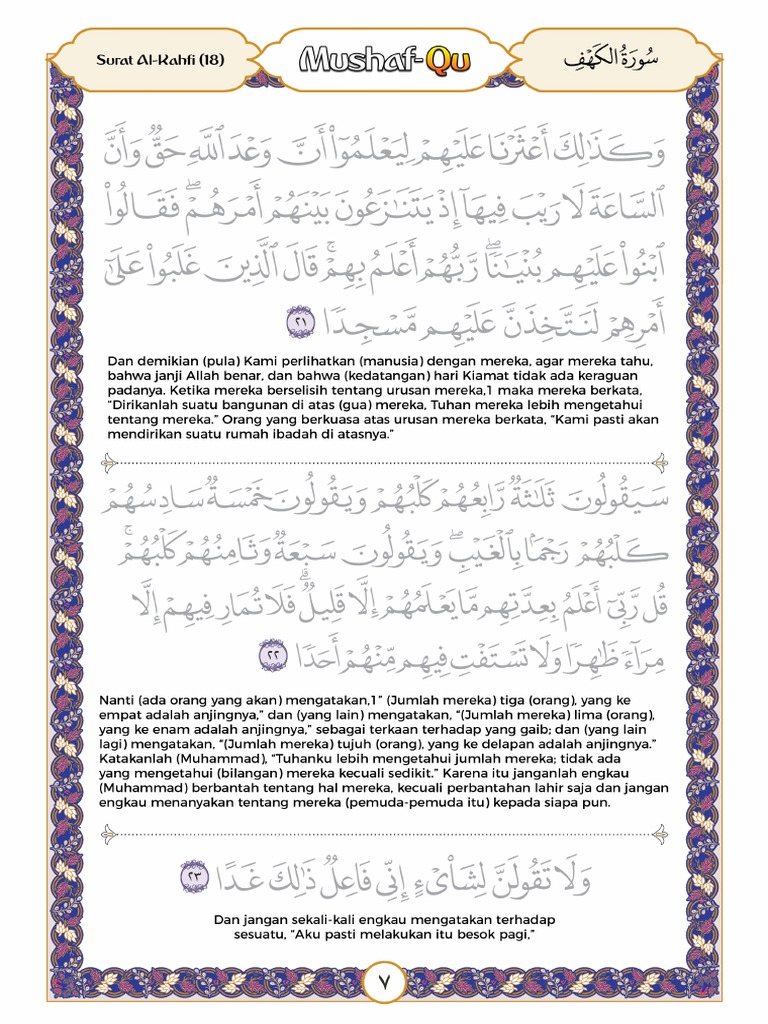 Surat Al-Kahfi (18)
Mushaf-Qu
سُورَةُ الكَهْفِ
وَكَذَٰلِكَ أَعْثَرْنَا عَلَيْهِمْ لِيَعْلَمُوٓا۟ أَنَّ وَعْدَ ٱللَّهِ حَقٌّ وَأَنَّ
ٱلسَّاعَةَ لَا رَيْبَ فِيهَآ إِذْ يَتَنَٰزَعُونَ بَيْنَهُمْ أَمْرَهُمْ ۖ فَقَالُوا۟
ٱبْنُوا۟ عَلَيْهِم بُنْيَٰنًا ۖ رَّبُّهُمْ أَعْلَمُ بِهِمْ ۚ قَالَ ٱلَّذِينَ غَلَبُوا۟ عَلَىٰٓ
أَمْرِهِمْ لَنَتَّخِذَنَّ عَلَيْهِم مَّسْجِدًا ٢١
Dan demikian (pula) Kami perlihatkan (manusia) dengan mereka, agar mereka tahu,
bahwa janji Allah benar, dan bahwa (kedatangan) hari Kiamat tidak ada keraguan
padanya. Ketika mereka berselisih tentang urusan mereka,1 maka mereka berkata,
“Dirikanlah suatu bangunan di atas (gua) mereka, Tuhan mereka lebih mengetahui
tentang mereka.” Orang yang berkuasa atas urusan mereka berkata, “Kami pasti akan
mendirikan suatu rumah ibadah di atasnya.”
سَيَقُولُونَ ثَلَٰثَةٌ رَّابِعُهُمْ كَلْبُهُمْ وَيَقُولُونَ خَمْسَةٌ سَادِسُهُمْ
كَلْبُهُمْ رَجْمًۢا بِٱلْغَيْبِ ۖ وَيَقُولُونَ سَبْعَةٌ وَثَامِنُهُمْ كَلْبُهُمْ ۚ
قُل رَّبِّىٓ أَعْلَمُ بِعِدَّتِهِم مَّا يَعْلَمُهُمْ إِلَّا قَلِيلٌ ۗ فَلَا تُمَارِ فِيهِمْ إِلَّا
مِرَآءً ظَٰهِرًا وَلَا تَسْتَفْتِ فِيهِم مِّنْهُمْ أَحَدًا ٢٢
Nanti (ada orang yang akan) mengatakan,1” (Jumlah mereka) tiga (orang), yang ke
empat adalah anjingnya,” dan (yang lain) mengatakan, “(Jumlah mereka) lima (orang),
yang ke enam adalah anjingnya,” sebagai terkaan terhadap yang gaib; dan (yang lain
lagi) mengatakan, “(Jumlah mereka) tujuh (orang), yang ke delapan adalah anjingnya.”
Katakanlah (Muhammad), “Tuhanku lebih mengetahui jumlah mereka; tidak ada
yang mengetahui (bilangan) mereka kecuali sedikit.” Karena itu janganlah engkau
(Muhammad) berbantah tentang hal mereka, kecuali perbantahan lahir saja dan jangan
engkau menanyakan tentang mereka (pemuda-pemuda itu) kepada siapa pun.
وَلَا تَقُولَنَّ لِشَا۟ىْءٍ إِنِّى فَاعِلٌ ذَٰلِكَ غَدًا ٢٣
Dan jangan sekali-kali engkau mengatakan terhadap
sesuatu, “Aku pasti melakukan itu besok pagi,”
٧